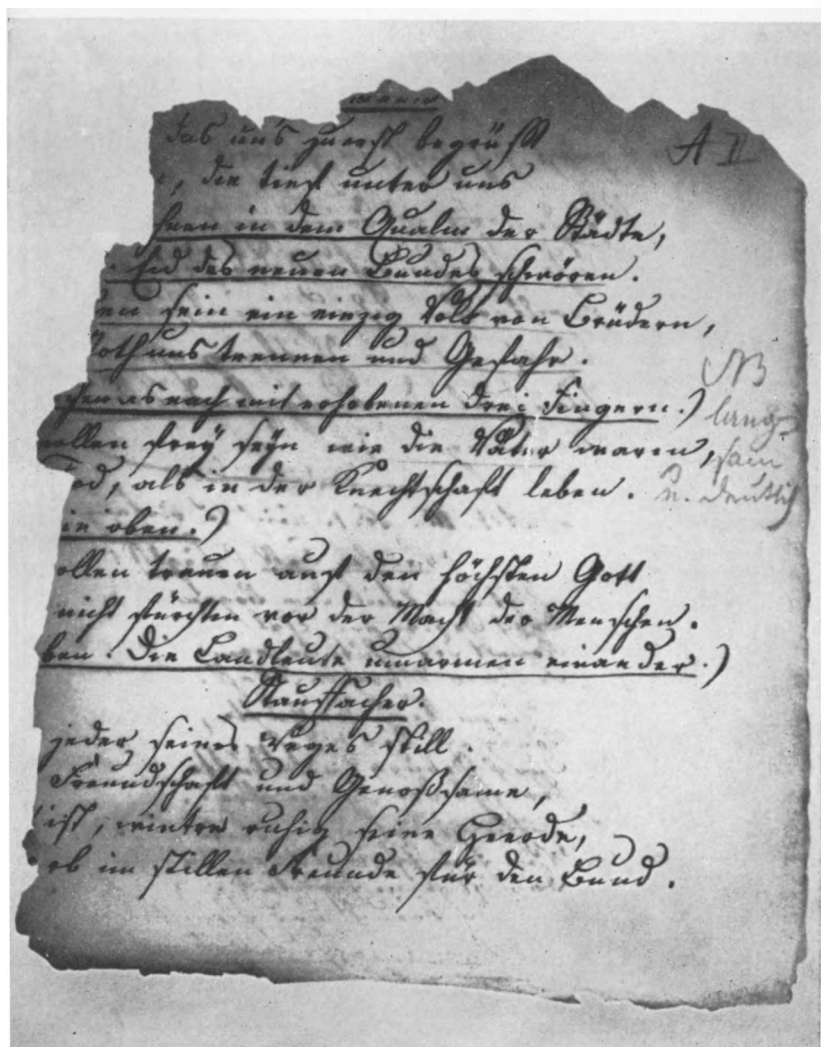 das uns zuerst begrüßt
A II
, die tief unter uns
hnen in dem Qualm der Städte,
Eid des neuen Bundes schwören.
en sein ein einzig Volk von Brüdern,
oth uns trennen und Gefahr.
chen es nach mit erhobenen drei Fingern.)
NB
lang-
sam
u. deutlich
wollen frey seyn wie die Väter waren,
Tod, als in der Knechtschaft leben.
ie oben.)
ollen trauen auf den höchsten Gott
nicht fürchten vor der Macht der Menschen.
ben. Die Landleute umarmen einander.)
Stauffacher.
jeder seines Weges still.
Freundschaft und Genoßsame,
ist, wintre ruhig seine Heerde,
rb im stillen Freunde für den Bund.